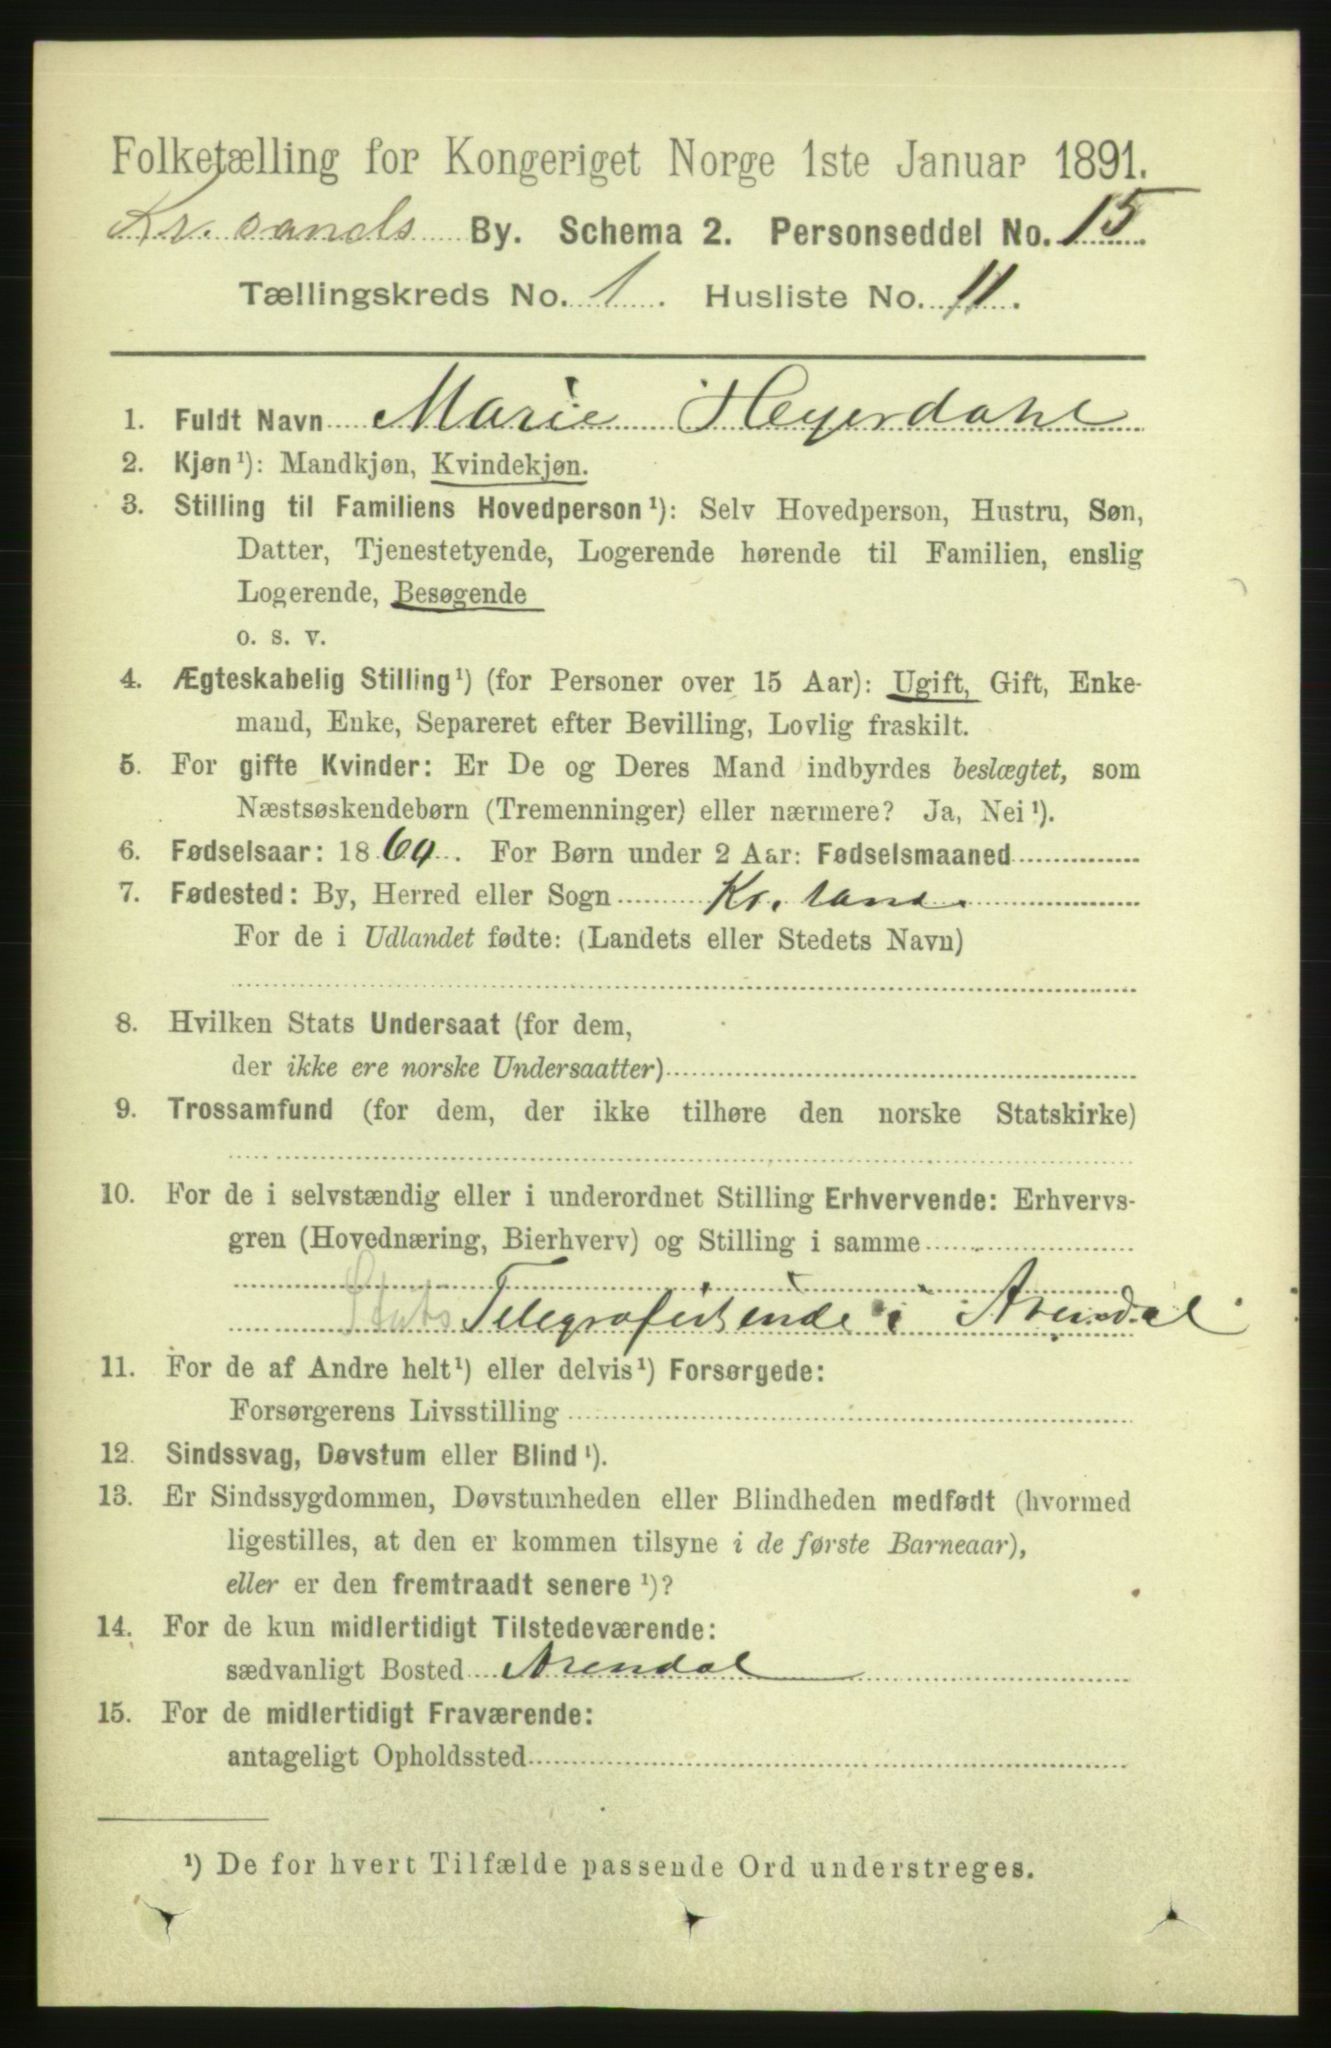 Folketælling for Kongeriget Norge 1ste Januar 1891.
Kr.sands By. Schema 2. Personseddel No. 15
Tællingskreds No. 1. Husliste No. 11.
1. Fuldt Navn Marie Heyerdahl
2. Kjøn¹): Mandkjøn, Kvindekjøn.
3. Stilling til Familiens Hovedperson¹): Selv Hovedperson, Hustru, Søn,
Datter, Tjenestetyende, Logerende hørende til Familien, enslig
Logerende, Besøgende
o. s. v.
4. Ægteskabelig Stilling¹) (for Personer over 15 Aar): Ugift, Gift, Enke-
mand, Enke, Separeret efter Bevilling, Lovlig fraskilt.
5. For gifte Kvinder: Er De og Deres Mand indbyrdes beslægtet, som
Næstsøskendebørn (Tremenninger) eller nærmere? Ja, Nei¹).
6. Fødselsaar: 1869. For Børn under 2 Aar: Fødselsmaaned
7. Fødested: By, Herred eller Sogn Kr. sand.
For de i Udlandet fødte: (Landets eller Stedets Navn)
8. Hvilken Stats Undersaat (for dem,
der ikke ere norske Undersaatter)
9. Trossamfund (for dem, der ikke tilhøre den norske Statskirke)
10. For de i selvstændig eller i underordnet Stilling Erhvervende: Erhvervs-
gren (Hovednæring, Bierhverv) og Stilling i samme
Stats Telegrafistinde i Arendal
11. For de af Andre helt¹) eller delvis¹) Forsørgede:
Forsørgerens Livsstilling
12. Sindssvag, Døvstum eller Blind¹).
13. Er Sindssygdommen, Døvstumheden eller Blindheden medfødt (hvormed
ligestilles, at den er kommen tilsyne i de første Barneaar),
eller er den fremtraadt senere¹)?
14. For de kun midlertidigt Tilstedeværende:
sædvanligt Bosted Arendal
15. For de midlertidigt Fraværende:
antageligt Opholdssted
¹) De for hvert Tilfælde passende Ord understreges.